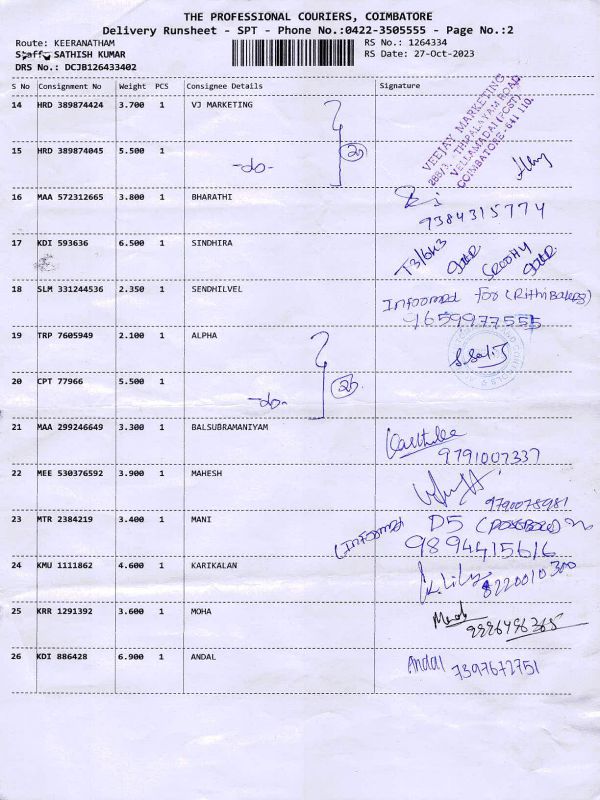 THE PROFESSIONAL COURIERS, COIMBATORE
Delivery Runsheet - SPT - Phone No.:0422-3505555 - Page No.:2
Route: KEERANATHAM
RS No.: 1264334
Staff: SATHISH KUMAR
RS Date: 27-Oct-2023
DRS No.: DCJB126433402
S No Consignment No Weight PCS Consignee Details Signature
14 HRD 389874424 3.700 1 VJ MARKETING
VEEJAY MARKETING
VELLAMADAI (POST)
COIMBATORE- 641 110.
15 HRD 389874045 5.500 1 -do-
16 MAA 572312665 3.800 1 BHARATHI
7384315774
17 KDI 593636 6.500 1 SINDHIRA
18 SLM 331244536 2.350 1 SENDHILVEL
Informed for (Rithi Bakers)
9659977555
19 TRP 7605949 2.100 1 ALPHA
20 CPT 77966 5.500 1 -do-
21 MAA 299246649 3.300 1 BALSUBRAMANIYAM
9791007337
22 MEE 530376592 3.900 1 MAHESH
9790078981
23 MTR 2384219 3.400 1 MANI
(Informed D5
9894415616
24 KMU 1111862 4.600 1 KARIKALAN
8220010300
25 KRR 1291392 3.600 1 MOHA
26 KDI 886428 6.900 1 ANDAL
Andal 7397672751